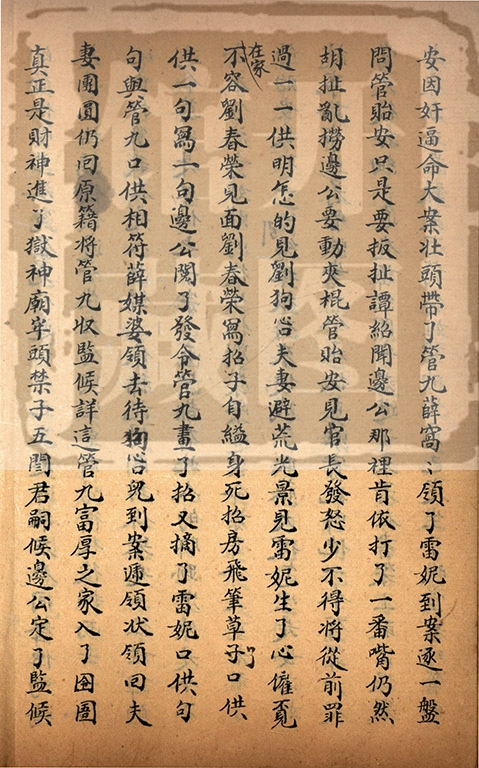 安因奸逼命大案壮頭帶了管九薛窩〻領了雷妮到案逐一盤
問管貽安只是要扳扯譚紹聞邊公那裡肯依打了一番嘴仍然
胡扯亂撈邊公要動夾棍管貽安見官長發怒少不得將從前罪
過一一供明怎的見劉狗㕵夫妻避荒光景見雷妮生了心僱覓
在家
不容劉春榮見面劉春榮寫招子自縊身死招房飛筆草子口供
供一句寫一句邊公閱了發令管九畫了招又摘了雷妮口供句
句與管九口供相符薛媒婆領去待狗㕵兒到案遞領状領回夫
妻團圓仍回原籍將管九收監候詳這管九富厚之家入了囹圄
真正是財神進了獄神廟牢頭禁子五閻君嗣候邊公定了監候